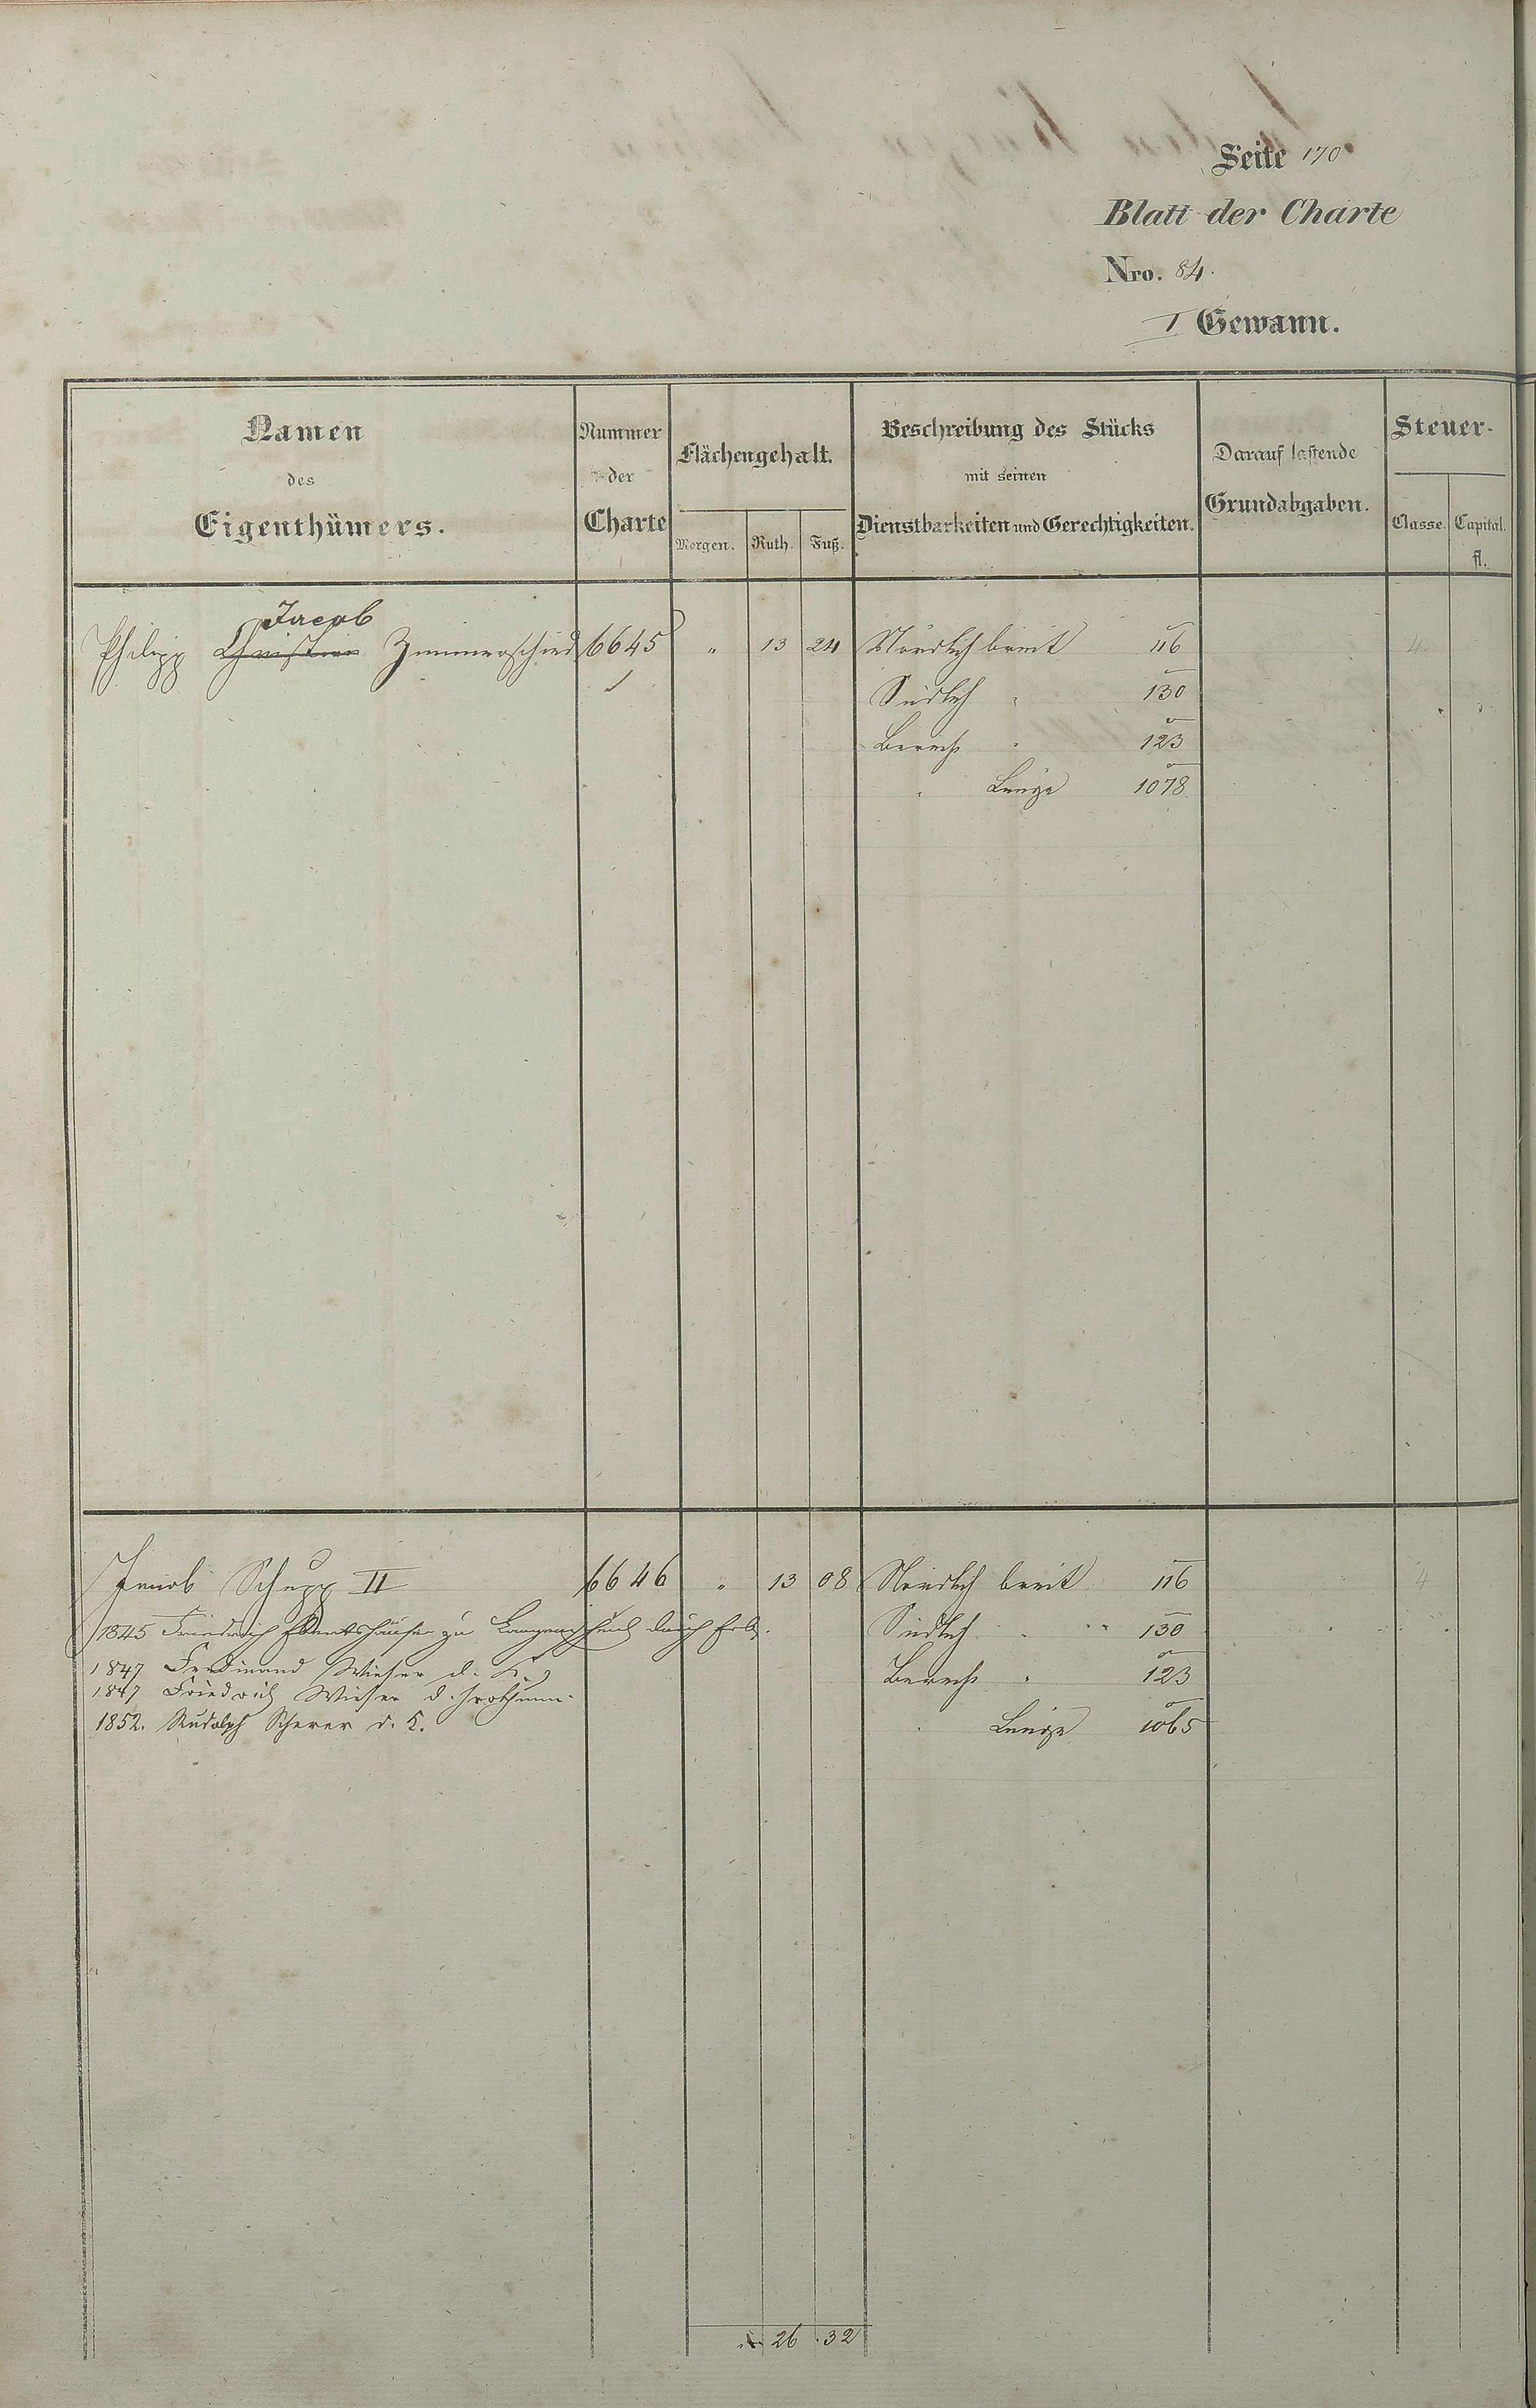 Seite 170
Blatt der Charte
Nro. 84.
I Gewann.
Namen des Eigenthümers.
Nummer der Charte
Flächengehalt.
Morgen. Ruth. Fuß.
Beschreibung des Stücks mit seinen Dienstbarkeiten und Gerechtigkeiten.
Darauf lastende Grundabgaben.
Steuer-
Classe. Capital. fl.
Jacob
Philipp Christian Zimmerschied 6645 " 13 24 Nördlich breit 116 4
Südlich " 130
Berech " 123
" Länge 1078
Jacob Schupp II 6646 " 13 08 Nördlich breit 116 4
1845 Friedrich zu durch
Südlich " 130
1847 Ferdinand Wieser d. K.
Berech " 123
1847 Friedrich Wieser d.
1852. Rudolph Scherer d. K.
" Länge 1065
26 32